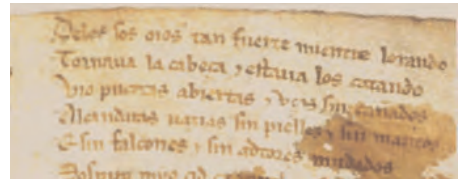 Delos sos oios tan fuerte mientre lorando
Tornaua la cabeça ⁊ estaua los catando
Vio puertas abiertas ⁊ vços sin cañados
Alcandaras uazias sin pielles ⁊ sin mantos
E sin falcones ⁊ sin adtores mudados
Sospiro myo çid